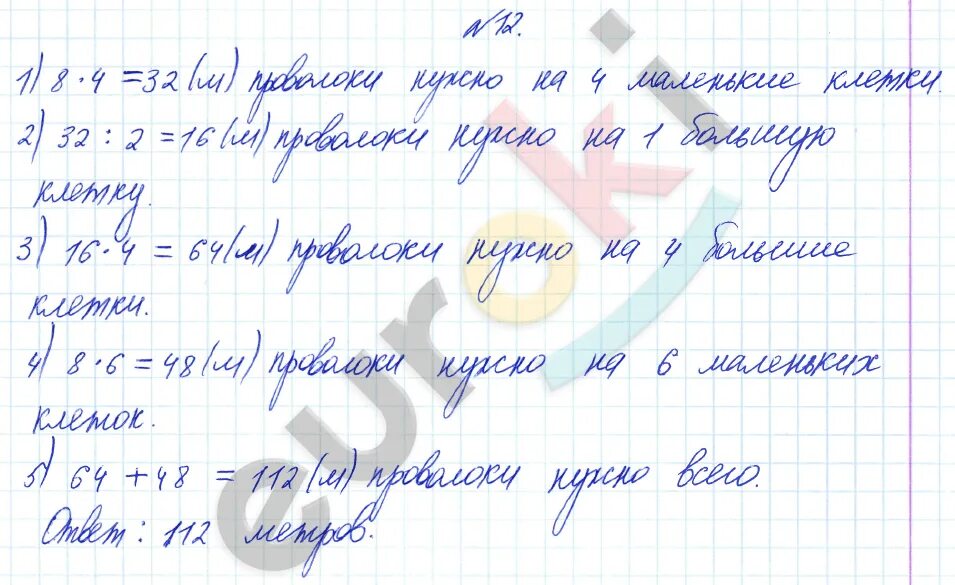 №12.
1) 8·4 = 32 (м) проволоки нужно на 4 маленькие клетки.
2) 32 : 2 = 16 (м) проволоки нужно на 1 большую
клетку.
3) 16·4 = 64 (м) проволоки нужно на 4 большие
клетки.
4) 8·6 = 48 (м) проволоки нужно на 6 маленьких
клеток.
5) 64 + 48 = 112 (м) проволоки нужно всего.
Ответ: 112 метров.
euroki